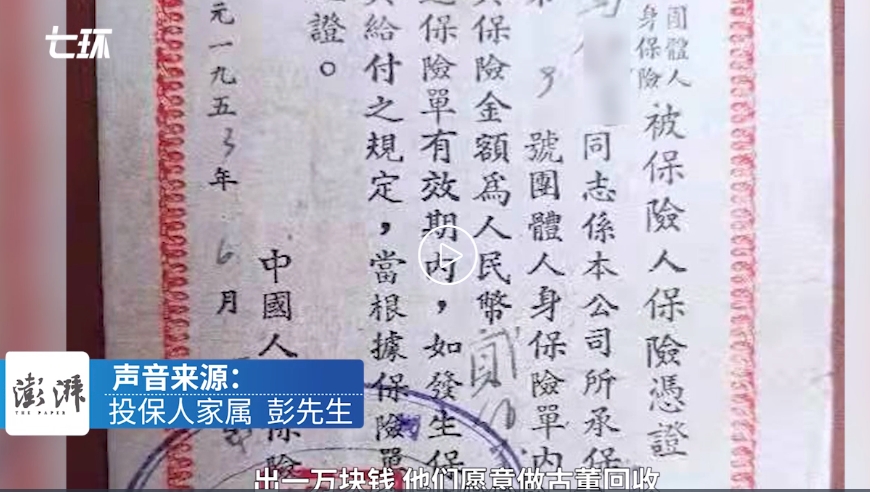 七环
團體人
身保險
被保險人保險憑證
同志係本公司所承保
第 3 號團體人身保險單內
其保險金額爲人民幣貳
之保險單有效期內，如發生保
給付之規定，當根據保險單
證。
中國人 保險
元一九五3年 6月
澎湃
THE PAPER
声音来源：
投保人家属 彭先生
出一万块钱 他们愿意做古董回收